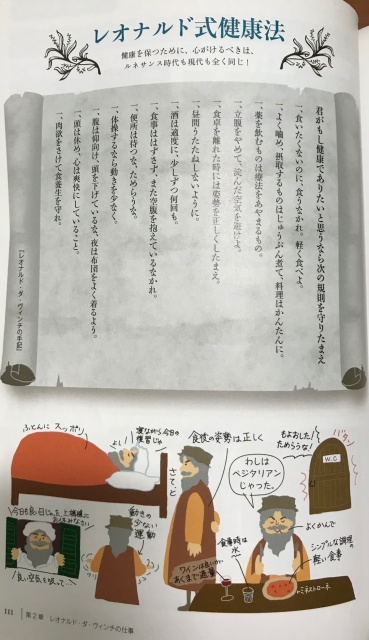 レオナルド式健康法
健康を保つために、心がけるべきは、
ルネサンス時代も現代も全く同じ！
君がもし健康でありたいと思うなら次の規則を守りたまえ
一、食いたくないのに、食うなかれ。軽く食べよ。
一、よく噛め、摂取するものはじゅうぶん煮て、料理はかんたんに。
一、薬を飲むものは療法をあやまるもの。
一、立腹をやめて、淀んだ空気を避けよ。
一、食卓を離れた時には姿勢を正しくしたまえ。
一、昼間うたたねしないように。
一、酒は適度に、少しずつ何回も。
一、食事ははずさず、また空腹を抱えているなかれ。
一、便所は待つな、ためらうな。
一、体操するなら動きを少なく。
一、腹は仰向け、頭を下げているな、夜は布団をよく着るよう。
一、頭は休め、心は爽快にしていること。
一、肉欲をさけて食養生を守れ。
[レオナルド・ダ・ヴィンチの手記]
ふとんに スッポリ
よし!
寝ながら今日の
復習じゃ
さて、と
食後の姿勢は正しく
わしは
ベジタリアン
じゃった。
もよおしたら
ためらうな!
バタン
W.C
今日も良い日じゃった
良い空気を吸って
動きの
少ない
運動
ワインは良いが
あくまで適量
食事時は
水
よくかんで
シンプルな調理の
軽い食事
ミネストローネ
111
第2章 レオナルド・ダ・ヴィンチの仕事